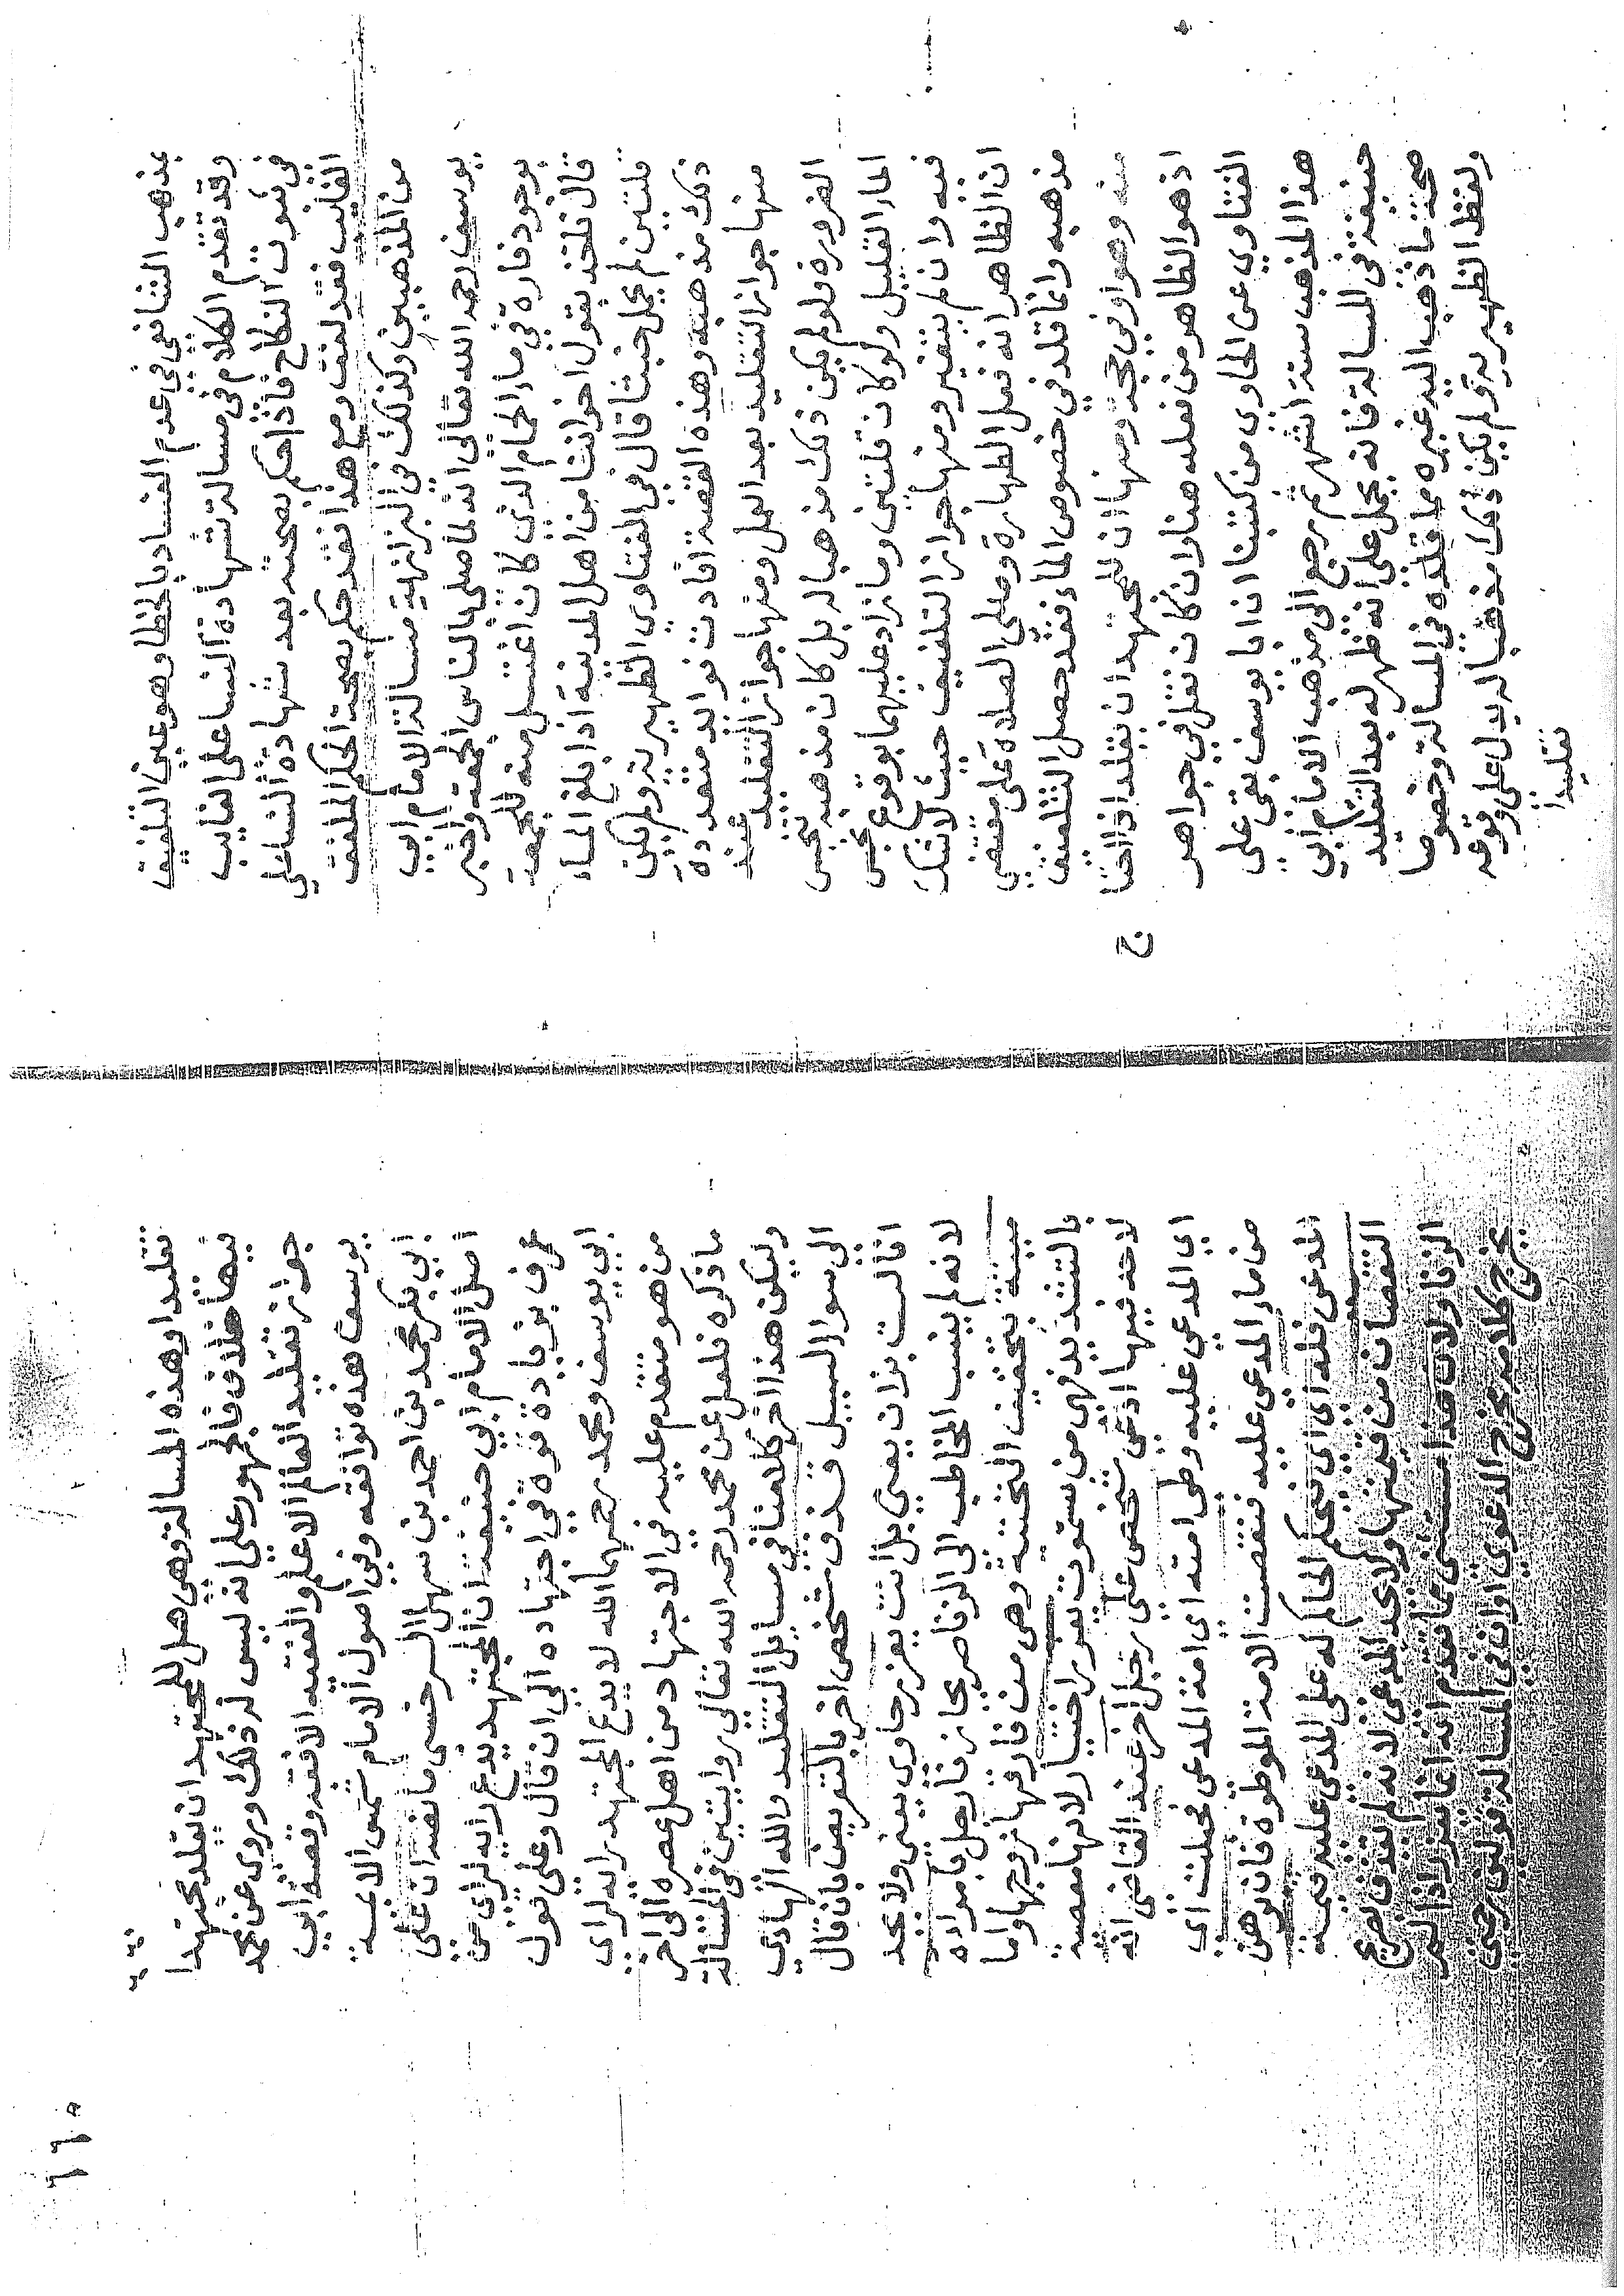 بمذهب الشافعي في عدم الفساد بالخطا وهو عين التلفيق
وقد تقدم الكلام في مسالة شهادة النسا على الغايب
في ثبوت النكاح فاذا حكم بصحته بعد شهادة النسا على
الغايب فقد لفق ومع هذا نفذ حكم بصحة الحكم الملفق
من المذهبين وكذلك في البزازية مسالة الامام ابي
يوسف رحمه الله تعالى انه لما صلى بالناس الجمعة واخبر
بوجود فارة في ماء الحمام الذي كان اغتسل منه للجمعة
قال ناخذ بقول اخواننا من اهل المدينة اذا بلغ الماء
قلتين لم يحمل خبثا قال في الفتاوي الظهيرية ولم يكن
ذلك مذهبه وهذه القصة افادت فوايد متعددة
منها جواز التقليد بعد العمل ومنها جواز التقليد عند
الضرورة فلو لم يكن ذلك مذهبا له بل كان مذهبه نجس
الماء القليل ولو كان قلتين وما زاد عليهما بوقوع نجس
فيه وان لم يتغير ومنها جواز التلفيق حيث لا شك
ان الظاهر انه فعل الطهارة وصلى الصلاة على مقتضى
مذهبه وانما قلد في خصوص الماء فقد حصل التلفيق
منه وهو اوفى حجة ومنها ان للمجتهد ان يقلد
اذ هو الظاهر من فعله هنا وان كان نقل في جواهر
الفتاوي عن الحاوي من كتبنا ان ابا يوسف بقي على
هذا المذهب ستة اشهر ثم رجع الى مذهب الامام ابي
حنيفة في المسالة فانه يحمل على انه ظهر له بعد التقليد
صحة ما ذهب اليه غيره مما قلده في المسالة وخصوصا
ولفظ الظهيرية ولم يكن ذلك مذهبا له يدل على وقوعه
تقليدا
١١٥
تقليدا وهذه المسالة وهي هل للمجتهد ان يقلد مجتهدا
فيها خلاف فالجمهور على انه ليس له ذلك وروي عن محمد
جواز تقليد العالم الاعلم والفقيه الافقه وقصة ابي
يوسف هذه توافقه وفي اصول الامام شمس الايمة
ابي بكر محمد بن احمد بن سهل السرخسي ما نصه ان على
اصل الامام ابي حنيفة ان المجتهد يدع رايه لراي من
عرف بزيادة قوة في اجتهاده الى ان قال وعلى قول
ابي يوسف ومحمد رحمهما الله لا يدع المجتهد رايه لراي
من هو متقدم عليه في الاجتهاد من اهل عصره الى اخر
ما ذكره فلعل عن محمد رحمه الله تعالى روايتين في المسالة
وليكن هذا اخر كلامنا في مسايل التقليد والله الهادي
الى سوا السبيل قذف شخص اخر بالتعريض بان قال
انا لست بزان يعني بل انت يعزر حاوي يعني ولا يحد
لانه لم ينسب المخاطب الى الزنا صريحا
بتخفيف وهي من فارقها زوجها واما
بالتشديد فهي من بقور اختيار لانها معصية
لا حد فيها ادعى شخص على رجل اخر عند القاضي انه
اي المدعي عليه وطي امته اي امة المدعي فحبلت اي
من ماء المدعي عليه فنقصت الامة الموطوة فان برهن
المدعي فله اي يحكم الحاكم له على المدعي عليه قيمة
النقصان من قيمتها ولا يحد المدعي لانه لم يقذف بصريح
الزنا ولان هذا مستثنى مما تقدم انه انما يعزر اذا لم
يخرج كلامه مخرج الدعوي او ان في المسالة قولين رجح